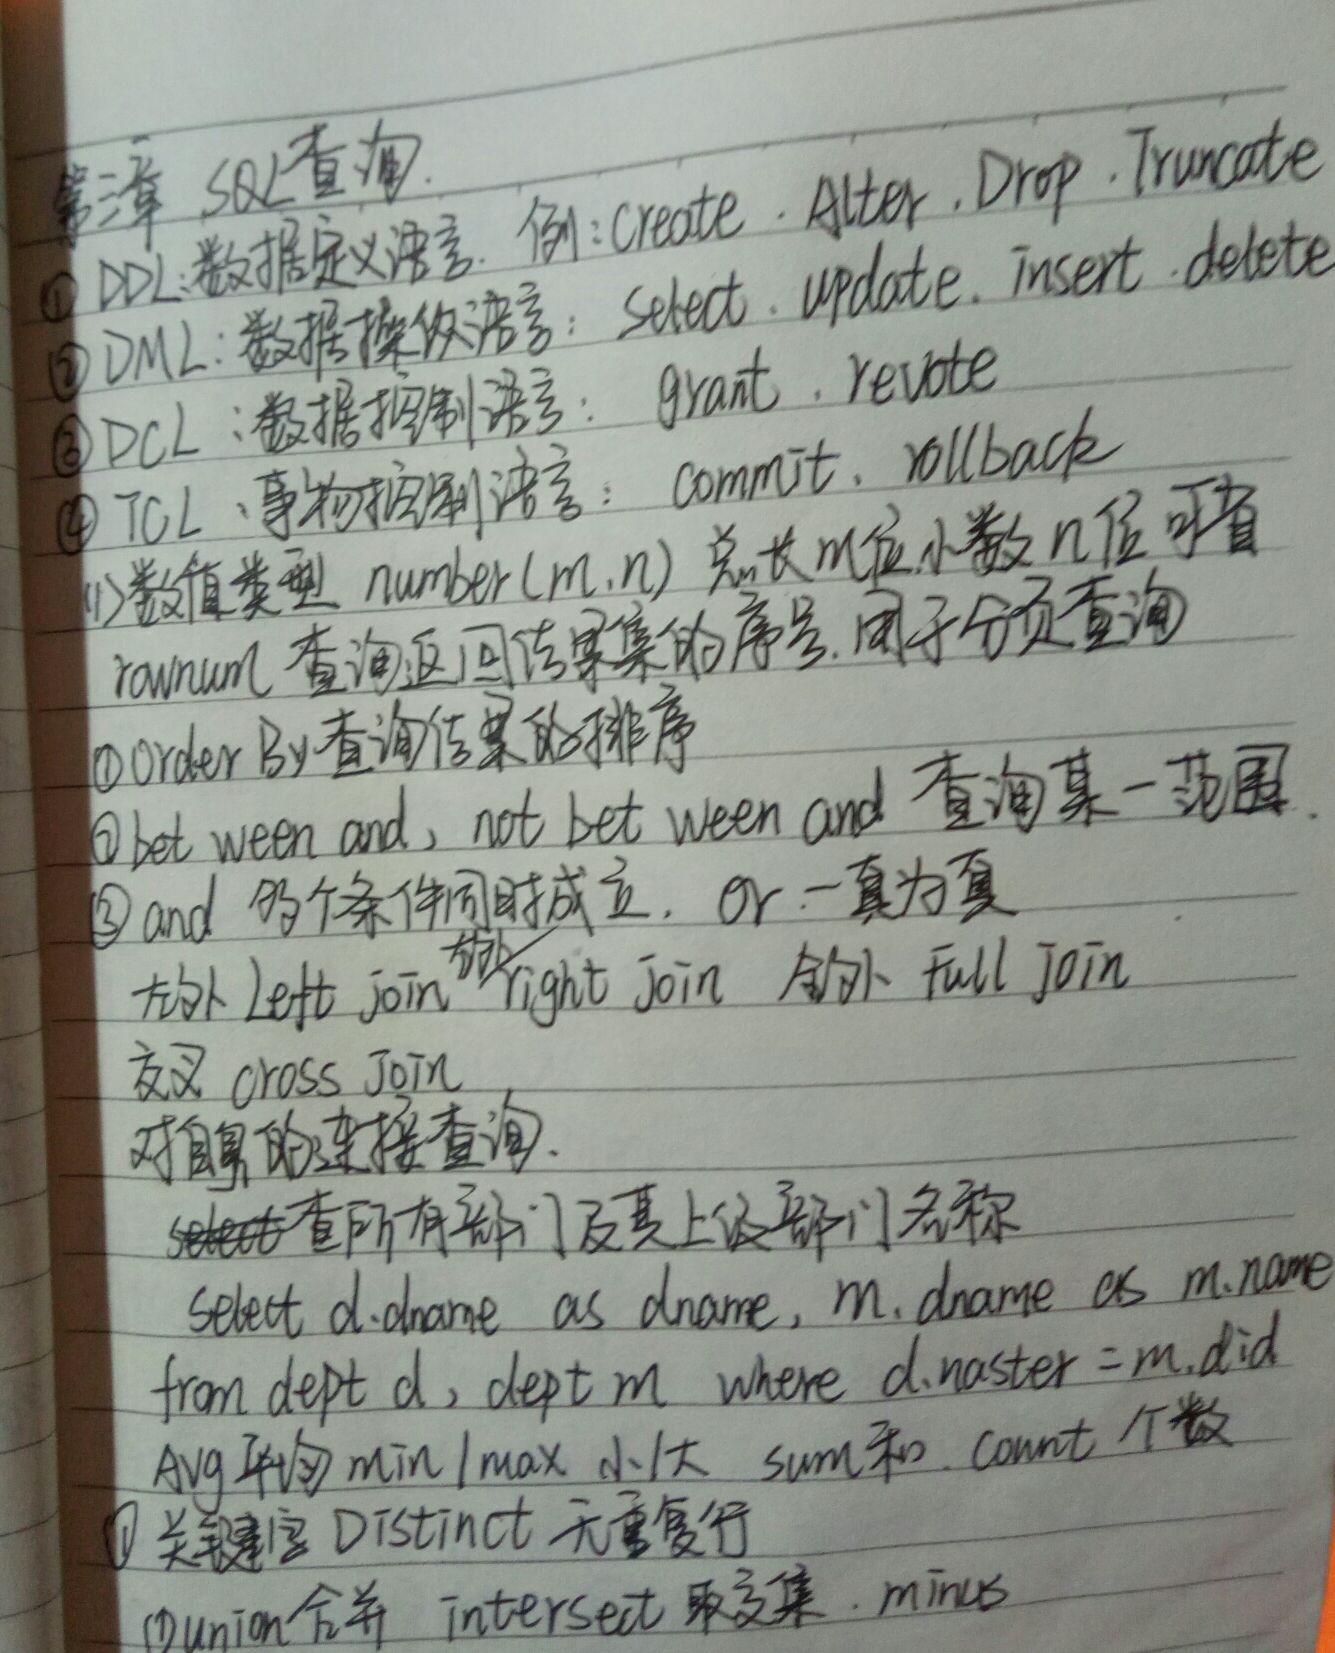 第三章 SQL查询.
① DDL:数据定义语言. 例:Create . Alter . Drop . Truncate
② DML:数据操纵语言: select . update . insert . delete
③ DCL :数据控制语言: grant . revote
④ TCL 、事物控制语言: commit . rollback
(1)数值类型 number(m.n) 总长m位小数n位 可省
rownum 查询返回结果集的序号.用于分页查询
① Order By 查询结果的排序
② bet ween and, not bet ween and 查询某一范围.
③ and 多个条件同时成立. or 一真为真
左外 Left join 右外 right join 全外 Full join
交叉 cross join
对自身的连接查询.
select 查所有部门及其上级部门名称
select d.dname as dname, m.dname as m.name
from dept d, dept m where d.naster = m.did
Avg平均 min/max 小/大 sum和 count 个数
① 关键字 Distinct 无重复行
① union合并 intersect 取交集 . minus